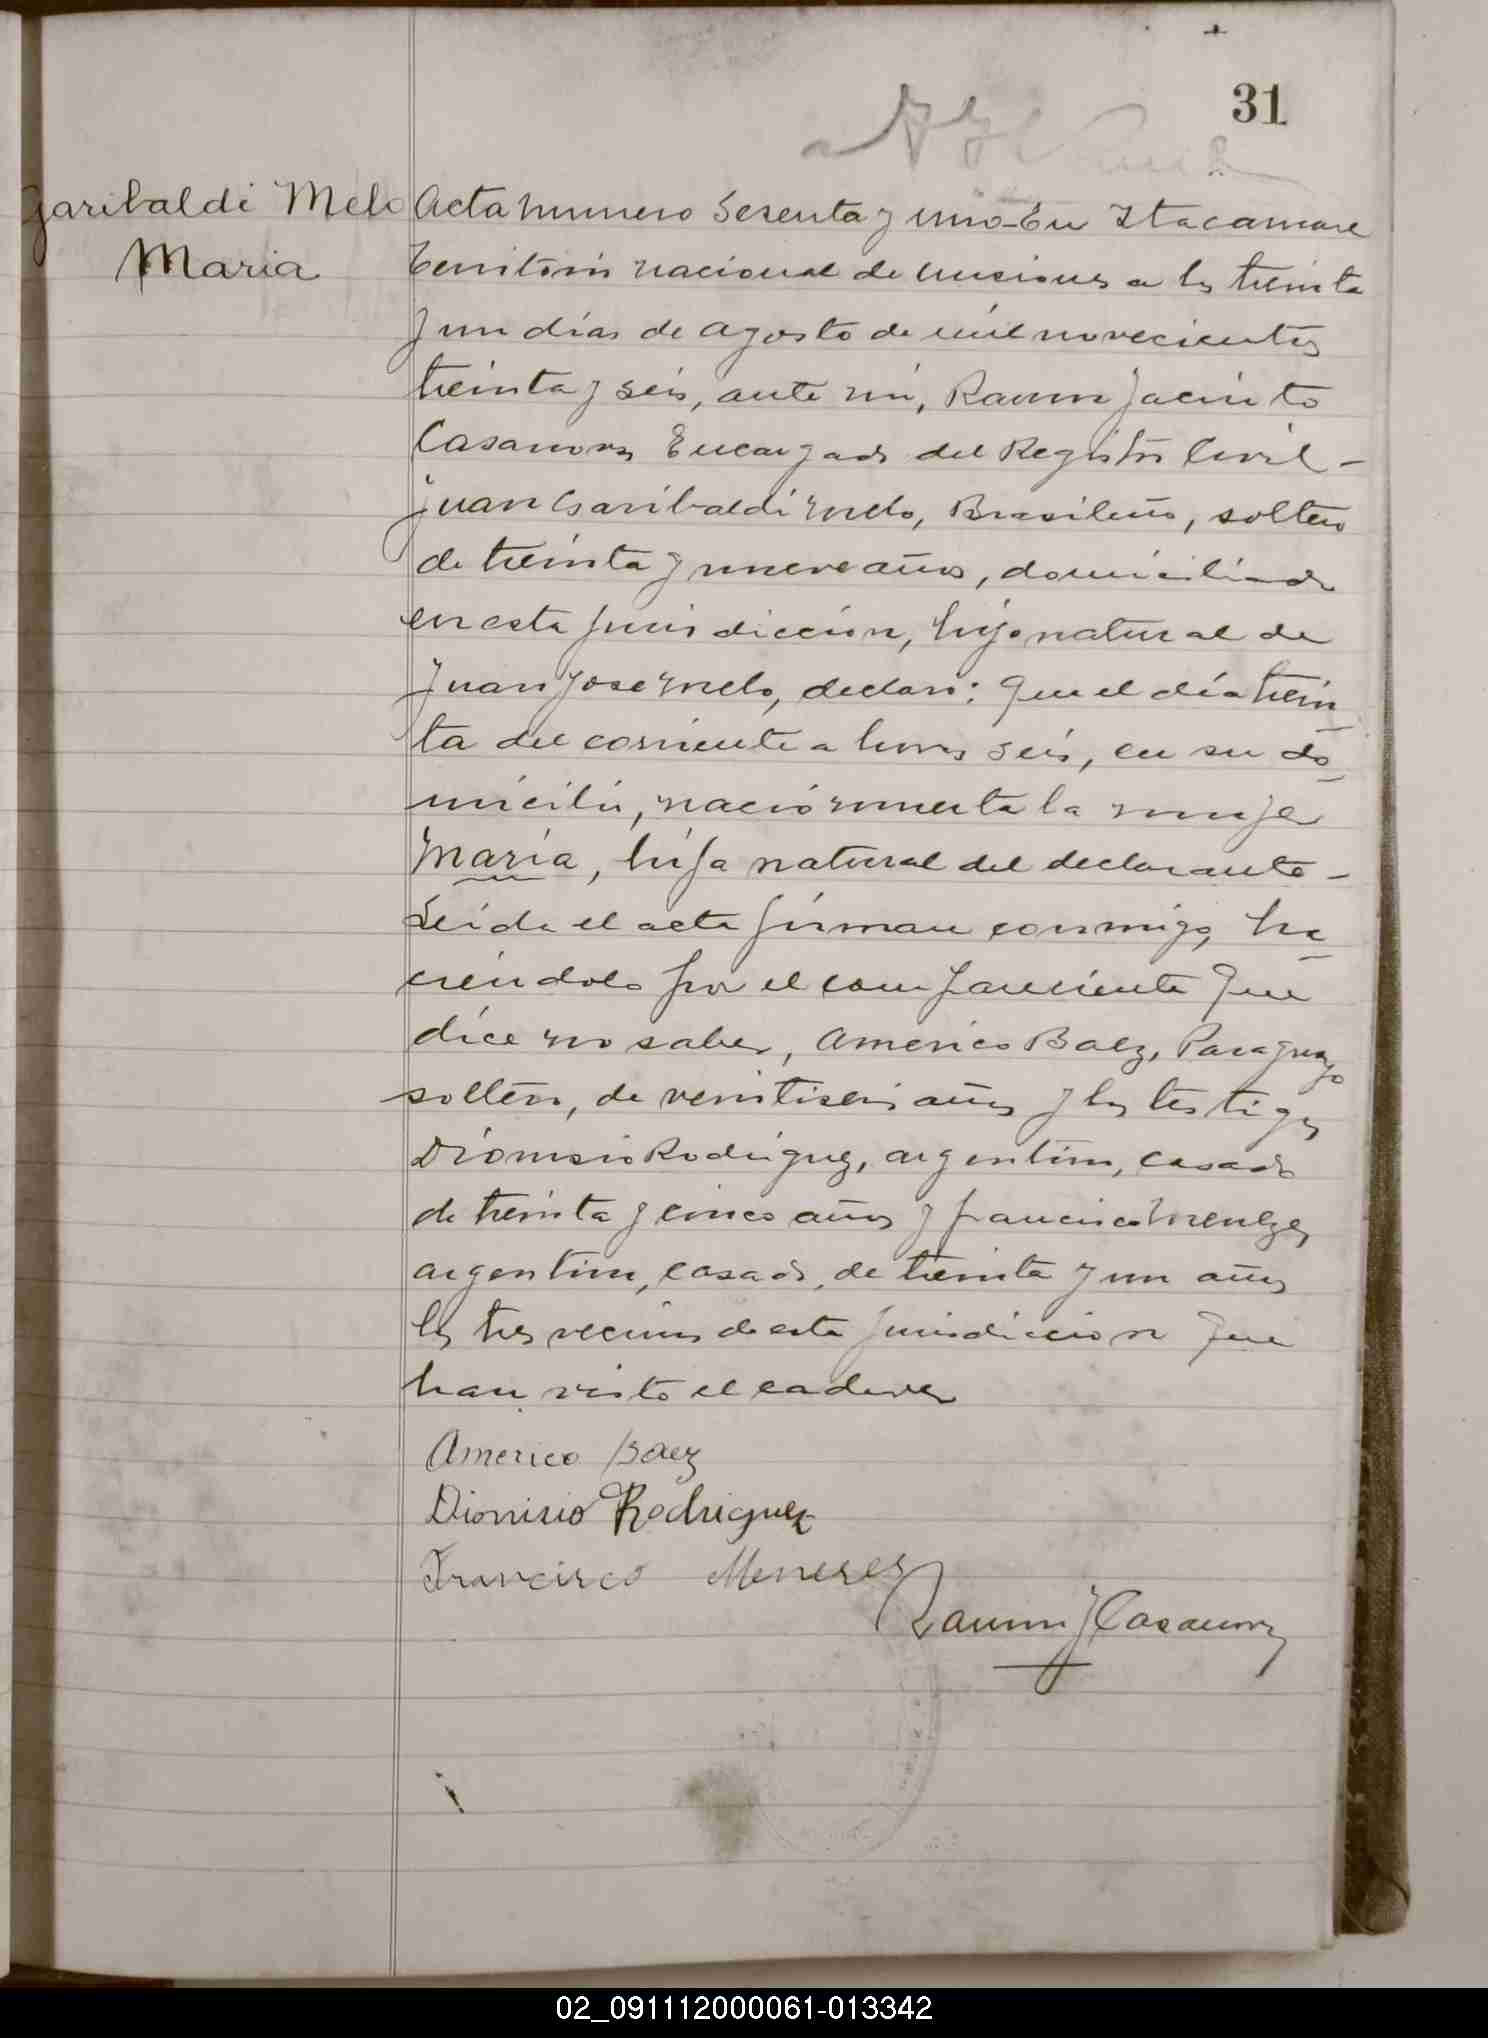 31
Garibaldi Melo
Maria
Acta numero Sesenta y uno - En Itacaruaré
Territorio nacional de Misiones a los treinta
y un días de agosto de mil novecientos
treinta y seis, ante mí, Ramon Jacinto
Casanova Encargado del Registro Civil -
Juan Garibaldi Melo, Brasileño, soltero
de treinta y nueve años, domiciliado
en esta jurisdiccion, hijo natural de
Juan Jose Melo, declaró: Que el día trein
ta del corriente a horas seis, en su do
micilio, nació muerta la mujer
María, hija natural del declarante -
Leída el acta firman conmigo, ha
ciéndolo por el compareciente que
dice no saber, Americo Baez, Paraguayo
soltero, de veintiseis años y los testigos
Dionisio Rodriguez, argentino, casado
de treinta y cinco años y Francisco Menezes
argentino, casado, de treinta y un años
los tres vecinos de esta jurisdiccion que
han visto el cadaver
Americo Baez
Dionisio Rodriguez
Francisco Meneses
Ramon J Casanova
02_091112000061-013342